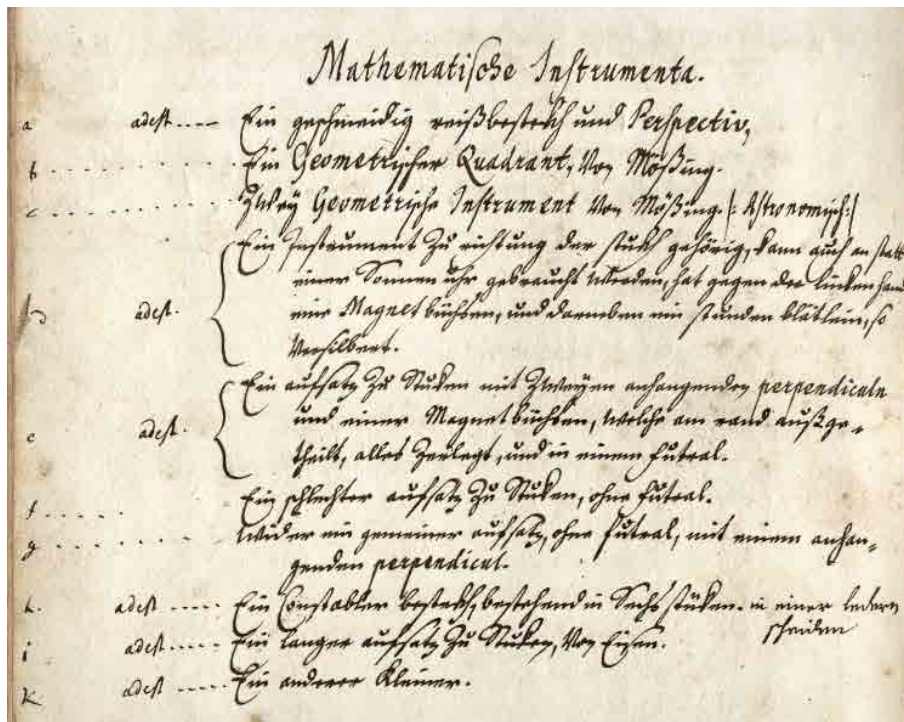 Mathematische Instrumenta.
a adest ..... Ein geschmeidig reißbesteckh und Perspectiv,
b ............ Ein Geometrischer Quadrant, Von Mößing.
c ............ Zwey Geometrische Instrument Von Mößing. /: Astronomisch :/
Ein Instrument Zu richtung der stukh gehörig, kann auch an statt
einer Sonnen uhr gebraucht werden, hat gegen der lincken hand
D adest. eine Magnet büchsen, und darneben ein stunden blätlein, so
Versilbert.
Ein aufsatz Zu Stuken mit Zweyen anhangenden perpendiculn
e adest. und einer Magnetbüchsen, welche am rand außge-
theilt, alles Zerlegt, und in einem futral.
f ...... Ein schlechter aufsatz Zu Stuken, ohne futral.
g ......... Wider ein gemeiner aufsatz, ohne futral, mit einem anhan-
genden perpendicul.
h. adest ..... Ein Constabler besteckh, bestehend in Sechs stüken. in einer ledern
scheiden
i adest ..... Ein langer aufsatz Zu Stuken, Von Eisen.
K adest ..... Ein anderer Kleiner.